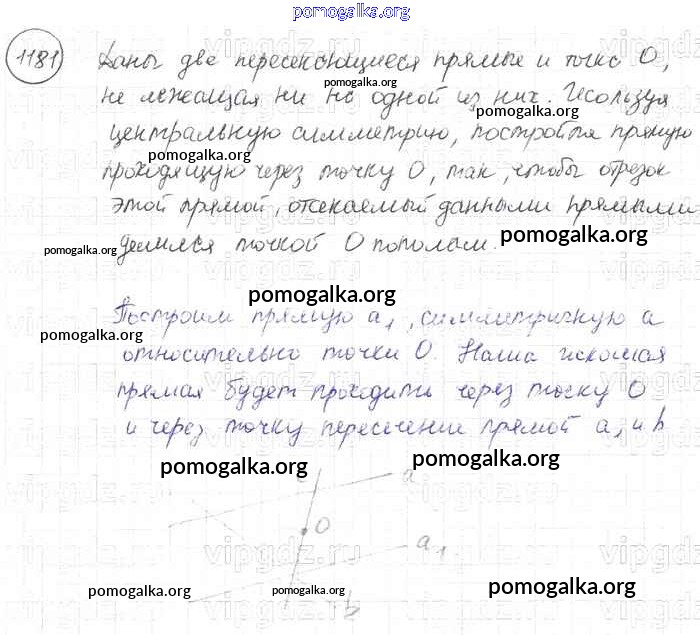 pomogalka.org
1181 Даны две пересекающиеся прямые и точка О,
pomogalka.org
не лежащая ни на одной из них. Используя
pomogalka.org
центральную симметрию, постройте прямую
pomogalka.org
проходящую через точку О, так, чтобы отрезок
этой прямой, отсекаемый данными прямыми
делился точкой О пополам.
pomogalka.org
pomogalka.org
pomogalka.org
Построим прямую a₁, симметричную a
pomogalka.org
относительно точки О. Наша искомая
прямая будет проходить через точку О
и через точку пересечении прямой a₁ и b
pomogalka.org
pomogalka.org
a
O
a₁
pomogalka.org
pomogalka.org
pomogalka.org
b
vipgdz.ru